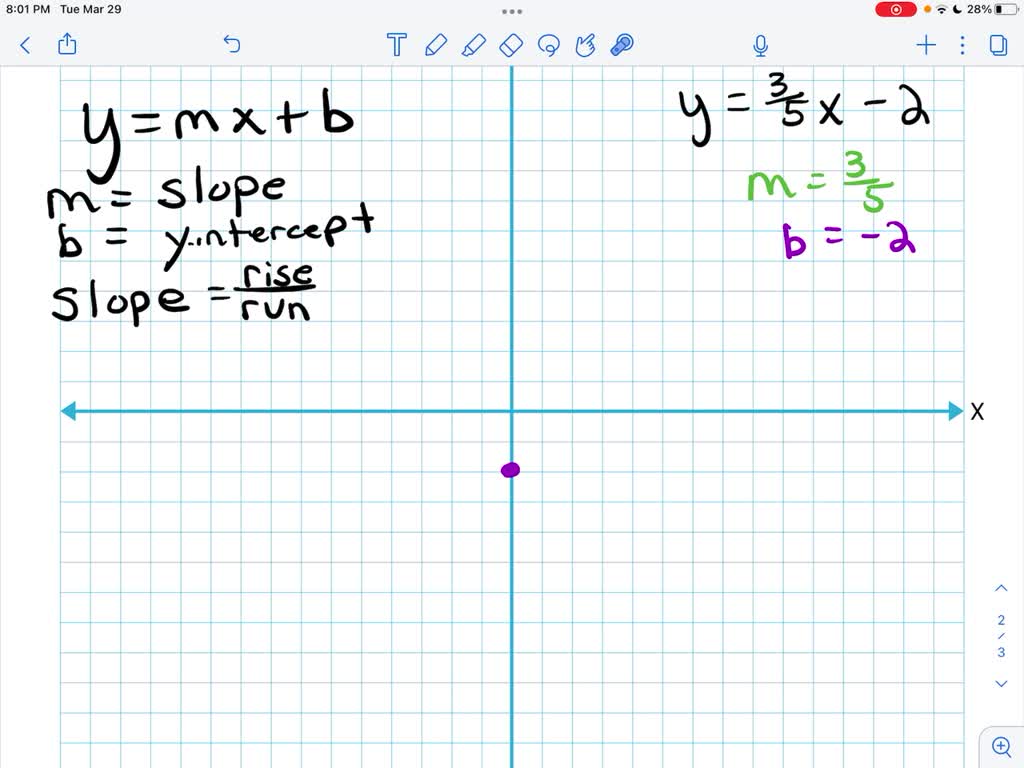 8:01 PM Tue Mar 29
28%
T
y = mx + b
m = slope
b = y-intercept
slope = rise/run
y = 3/5 x - 2
m = 3/5
b = -2
X
2
/
3